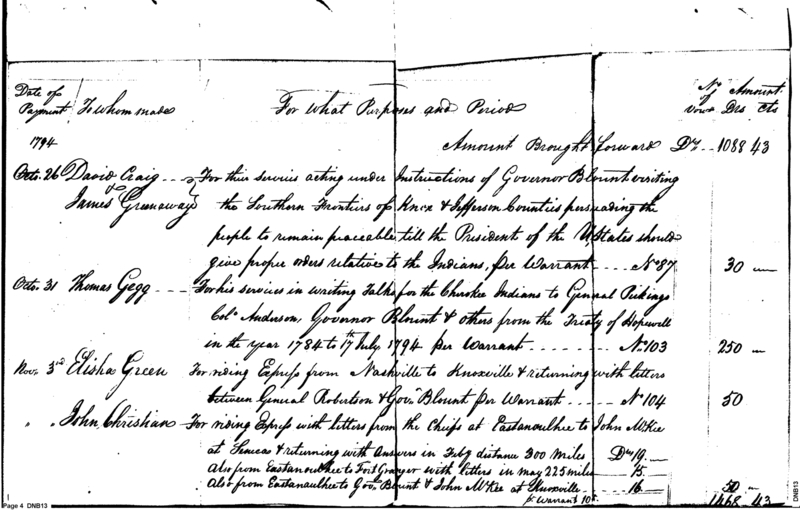 Date of Payment To whom made For What Purposes and Period No of Vour Amount Drs Cts
1794 Amount Brought forward Drs 1088 43
Octr. 26 David Craig & James Greenaway For their services acting under Instructions of Governor Blount visiting
the Southern Frontiers of Knox & Jefferson Counties persuading the
people to remain peaceable, till the President of the U States should
give proper orders relative to the Indians, per Warrant No 87 30 —
Octr. 31 Thomas Gegg For his services in writing Talks for the Cherokee Indians to General Pickings
Colo. Anderson, Governor Blount & others from the Treaty of Hopewell
in the year 1784 to 17th July, 1794 per Warrant No 103 250 —
Nov. 3rd Elisha Green For riding Express from Nashville to Knoxville & returning with letters
between General Robertson & Govr. Blount per Warrant No 104 50
" " John Christian For riding Express with letters from the Chiefs at Eastanaulhee to John McKee
at Seneca & returning with Answers in Feby distance 300 miles Drs 19.
Also from Eastanaulhee to Fort Granger with letters in may 225 miles 15.
Also from Eastanaulhee to Govr. Blount & John McKee at Knoxville 16 50 —
pr Warrant 105 1468 43
Page 4 DNB13
DNB13